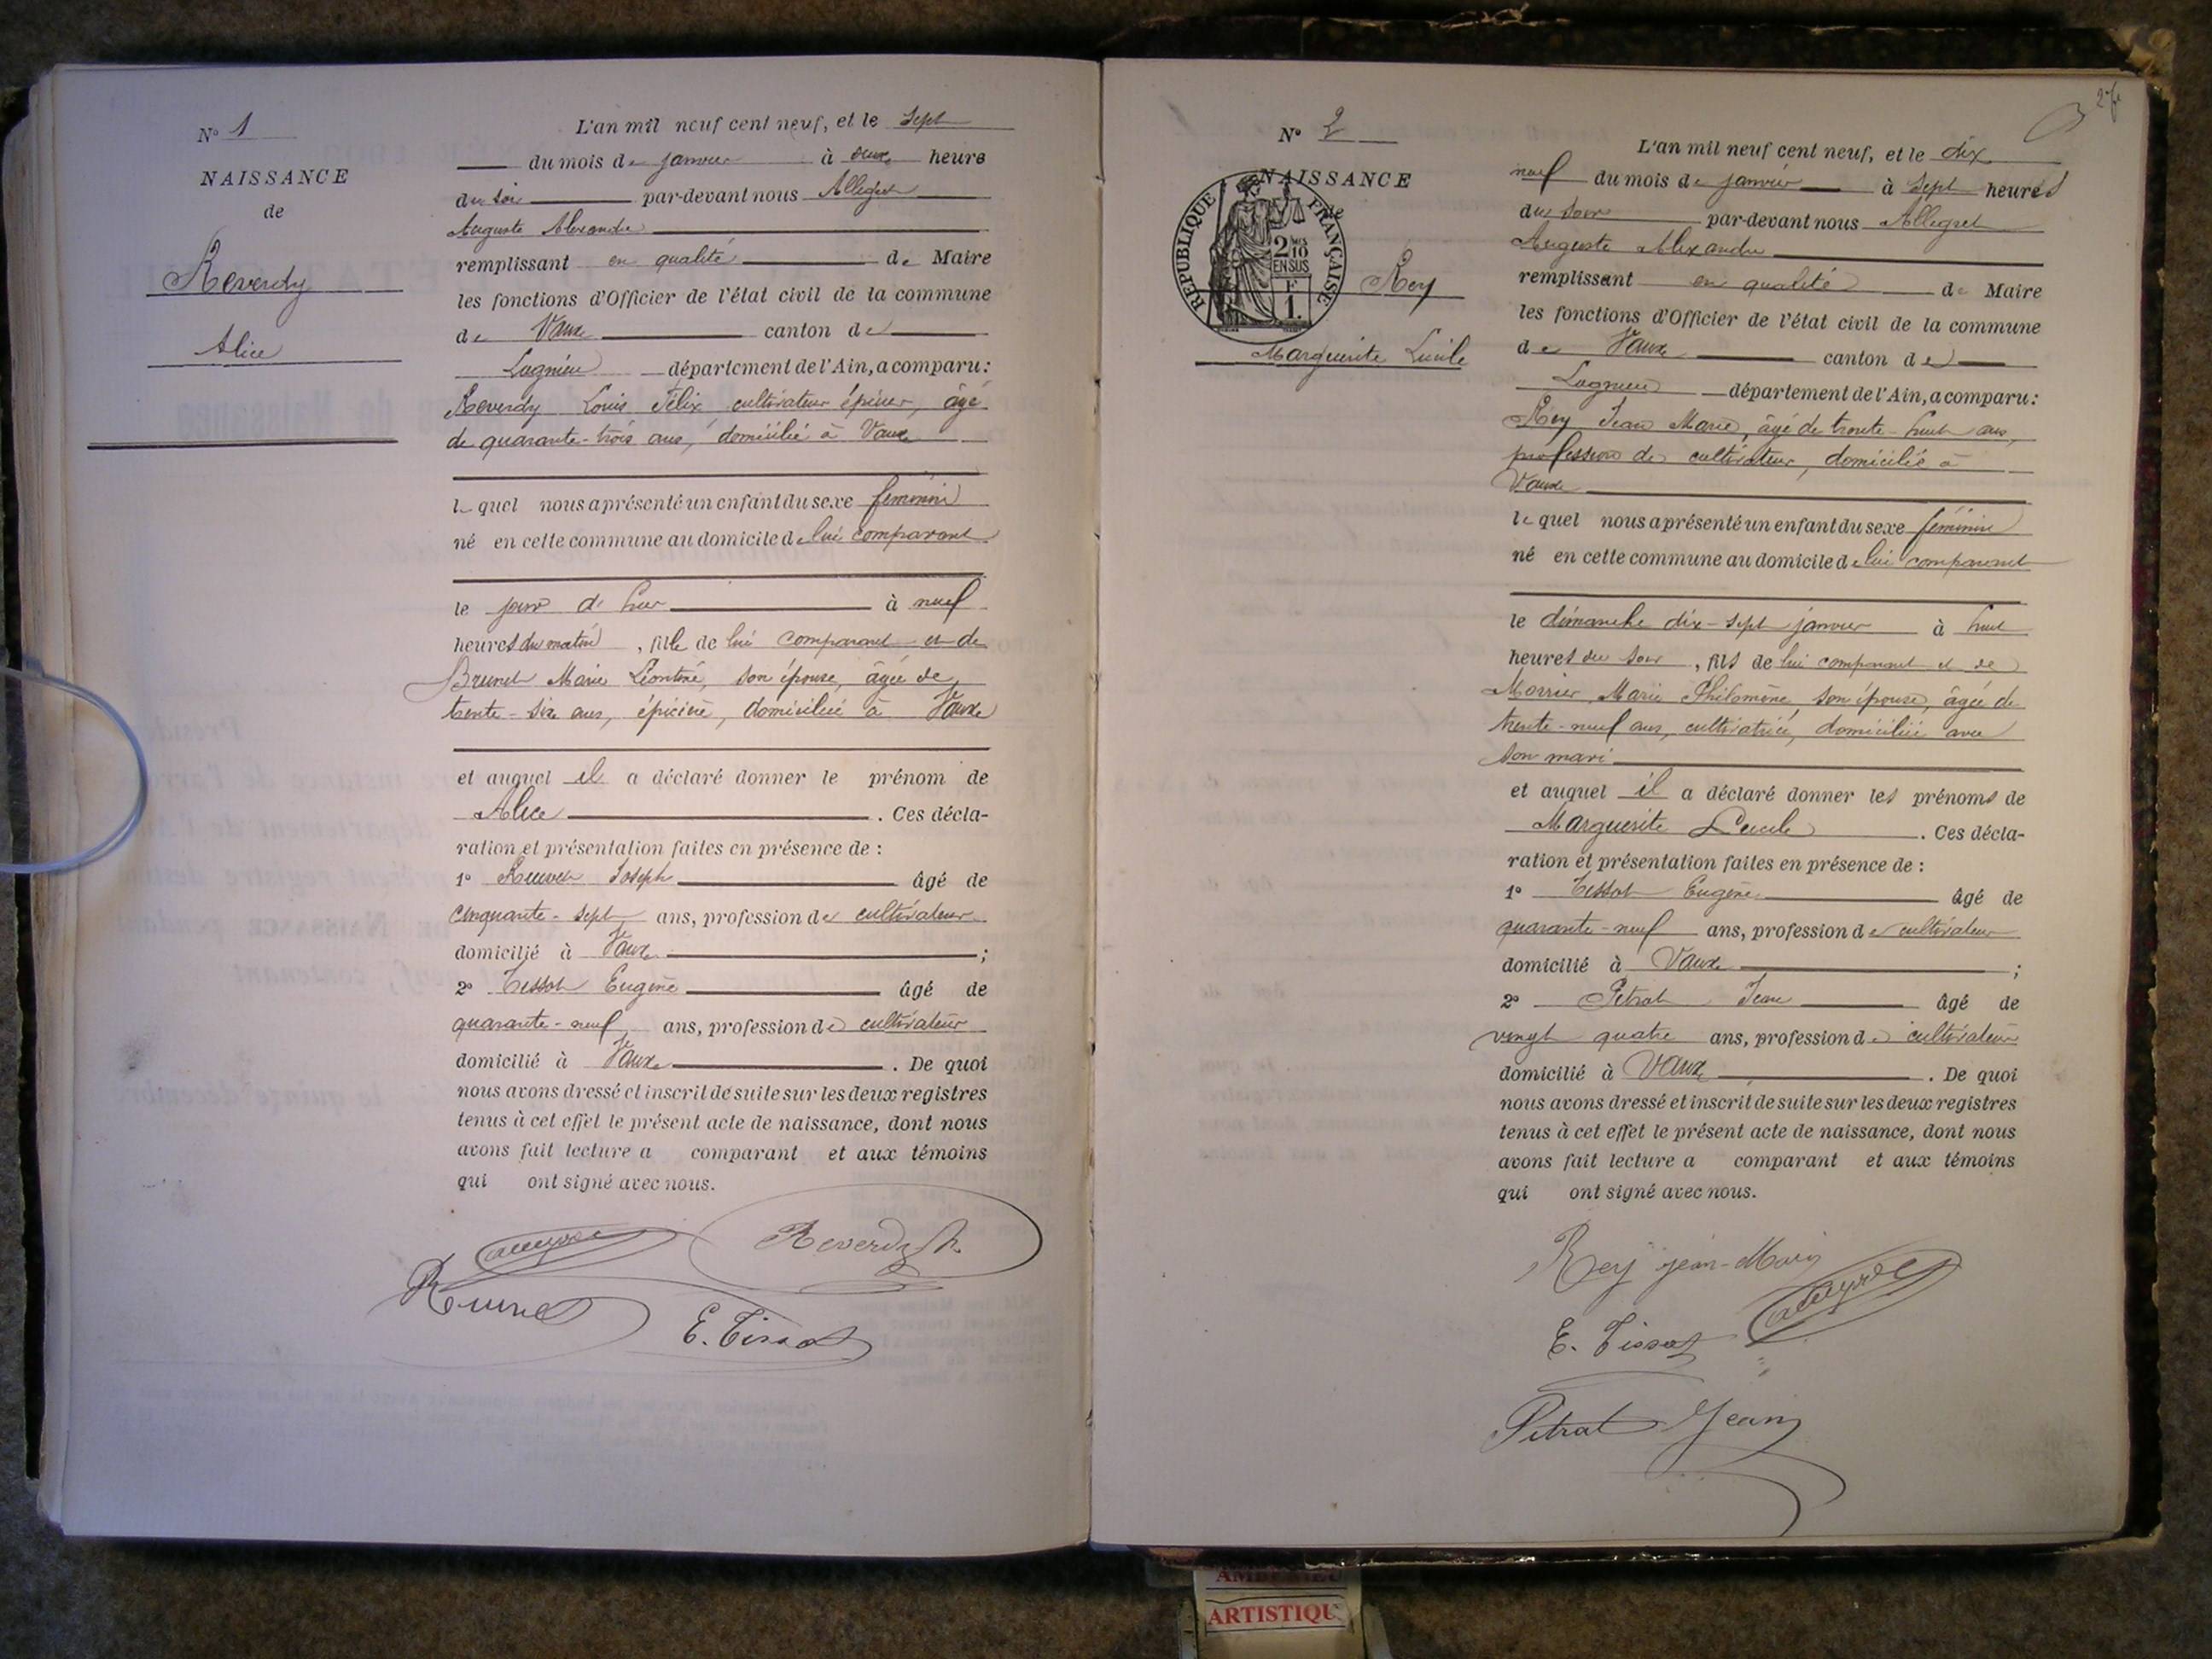 N° 1
NAISSANCE
de
Reverdy
Alice
L'an mil neuf cent neuf, et le sept
du mois de janvier à deux heure
du soir par-devant nous Allegret
Auguste Alexandre
remplissant en qualité de Maire
les fonctions d'Officier de l'état civil de la commune
de Vaux canton de
Lagnieu département de l'Ain, a comparu:
Reverdy Louis Félix cultivateur épicier, âgé
de quarante-trois ans, domicilié à Vaux
lequel nous a présenté un enfant du sexe féminin
né en cette commune au domicile de lui comparant
le jour d'hier à neuf
heures du matin, fille de lui comparant et de
Brunet Marie Léontine, son épouse, âgée de
trente-six ans, épicière, domiciliée à Vaux
et auquel il a déclaré donner le prénom de
Alice. Ces décla-
ration et présentation faites en présence de :
1° Joseph âgé de
cinquante-sept ans, profession de cultivateur
domicilié à Vaux ;
2° Tissot Eugène âgé de
quarante-neuf ans, profession de cultivateur
domicilié à Vaux. De quoi
nous avons dressé et inscrit de suite sur les deux registres
tenus à cet effet le présent acte de naissance, dont nous
avons fait lecture a comparant et aux témoins
qui ont signé avec nous.
Reverdy
E. Tissot
N° 2
NAISSANCE
de
RÉPUBLIQUE FRANÇAISE
2 10
EN SUS
F
1.
Rey
Marguerite Lucile
L'an mil neuf cent neuf, et le dix
neuf du mois de janvier à sept heures
du soir par-devant nous Allegret
Auguste Alexandre
remplissant en qualité de Maire
les fonctions d'Officier de l'état civil de la commune
de Vaux canton de
Lagnieu département de l'Ain, a comparu:
Rey Jean Marie, âgé de trente-huit ans,
profession de cultivateur, domicilié à
Vaux
lequel nous a présenté un enfant du sexe féminin
né en cette commune au domicile de lui comparant
le dimanche dix-sept janvier à huit
heures du soir, fils de lui comparant et de
Marie Philomène, son épouse, âgée de
trente-neuf ans, cultivatrice, domiciliée avec
son mari
et auquel il a déclaré donner les prénoms de
Marguerite Lucile. Ces décla-
ration et présentation faites en présence de :
1° Tissot Eugène âgé de
quarante-neuf ans, profession de cultivateur
domicilié à Vaux ;
2° Pétrat Jean âgé de
vingt quatre ans, profession de cultivateur
domicilié à Vaux. De quoi
nous avons dressé et inscrit de suite sur les deux registres
tenus à cet effet le présent acte de naissance, dont nous
avons fait lecture a comparant et aux témoins
qui ont signé avec nous.
Rey jean-Marie
E. Tissot
Pétrat Jean
ARTISTIQU